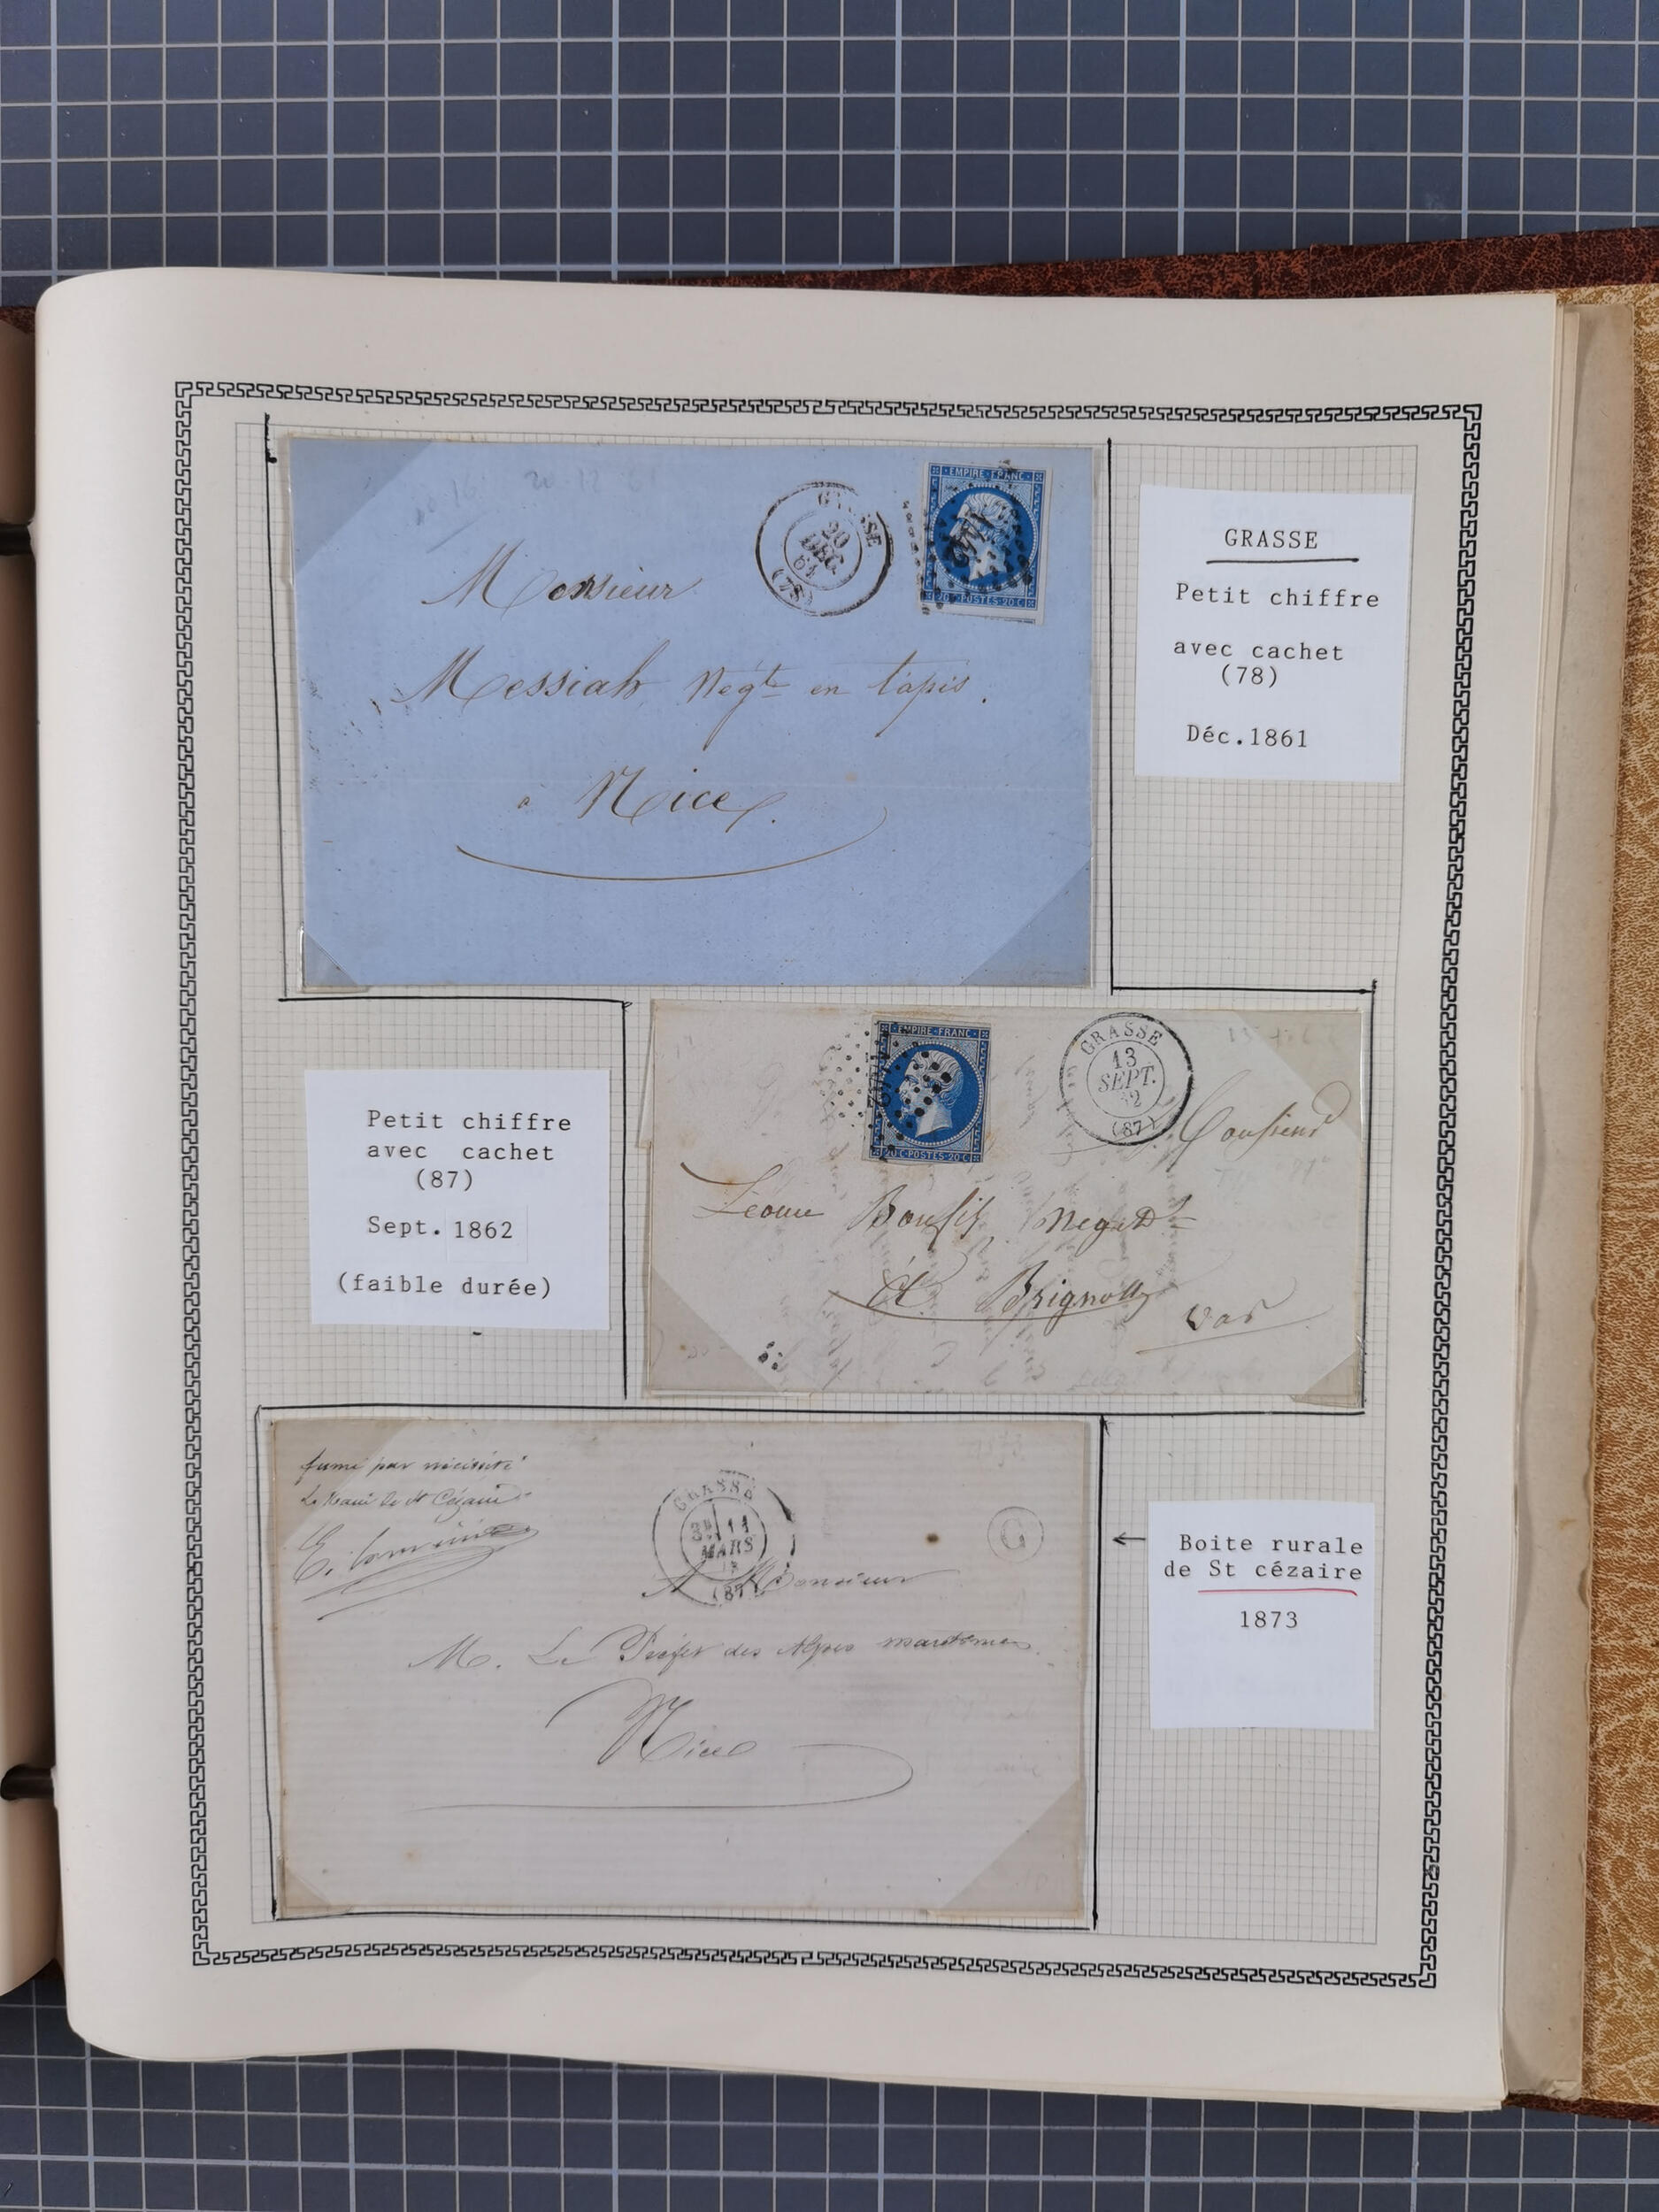 20 12 61
GRASSE
20
DEC
61
(78)
EMPIRE FRANC
20 C POSTES 20 C
Monsieur
Messiah Négt en tapis.
à Nice.
GRASSE
Petit chiffre
avec cachet
(78)
Déc.1861
EMPIRE FRANC
20 C POSTES 20 C
GRASSE
13
SEPT.
62
(87)
Monsieur
Bonfils Negt
A Brignolles
Var
Petit chiffre
avec cachet
(87)
Sept. 1862
(faible durée)
fermé par nécessité
Le Maire de St Cézaire
GRASSE
11
MARS
73
(87)
G
A Monsieur
M. Le Préfet des Alpes maritimes
Nice
Boite rurale
de St cézaire
1873